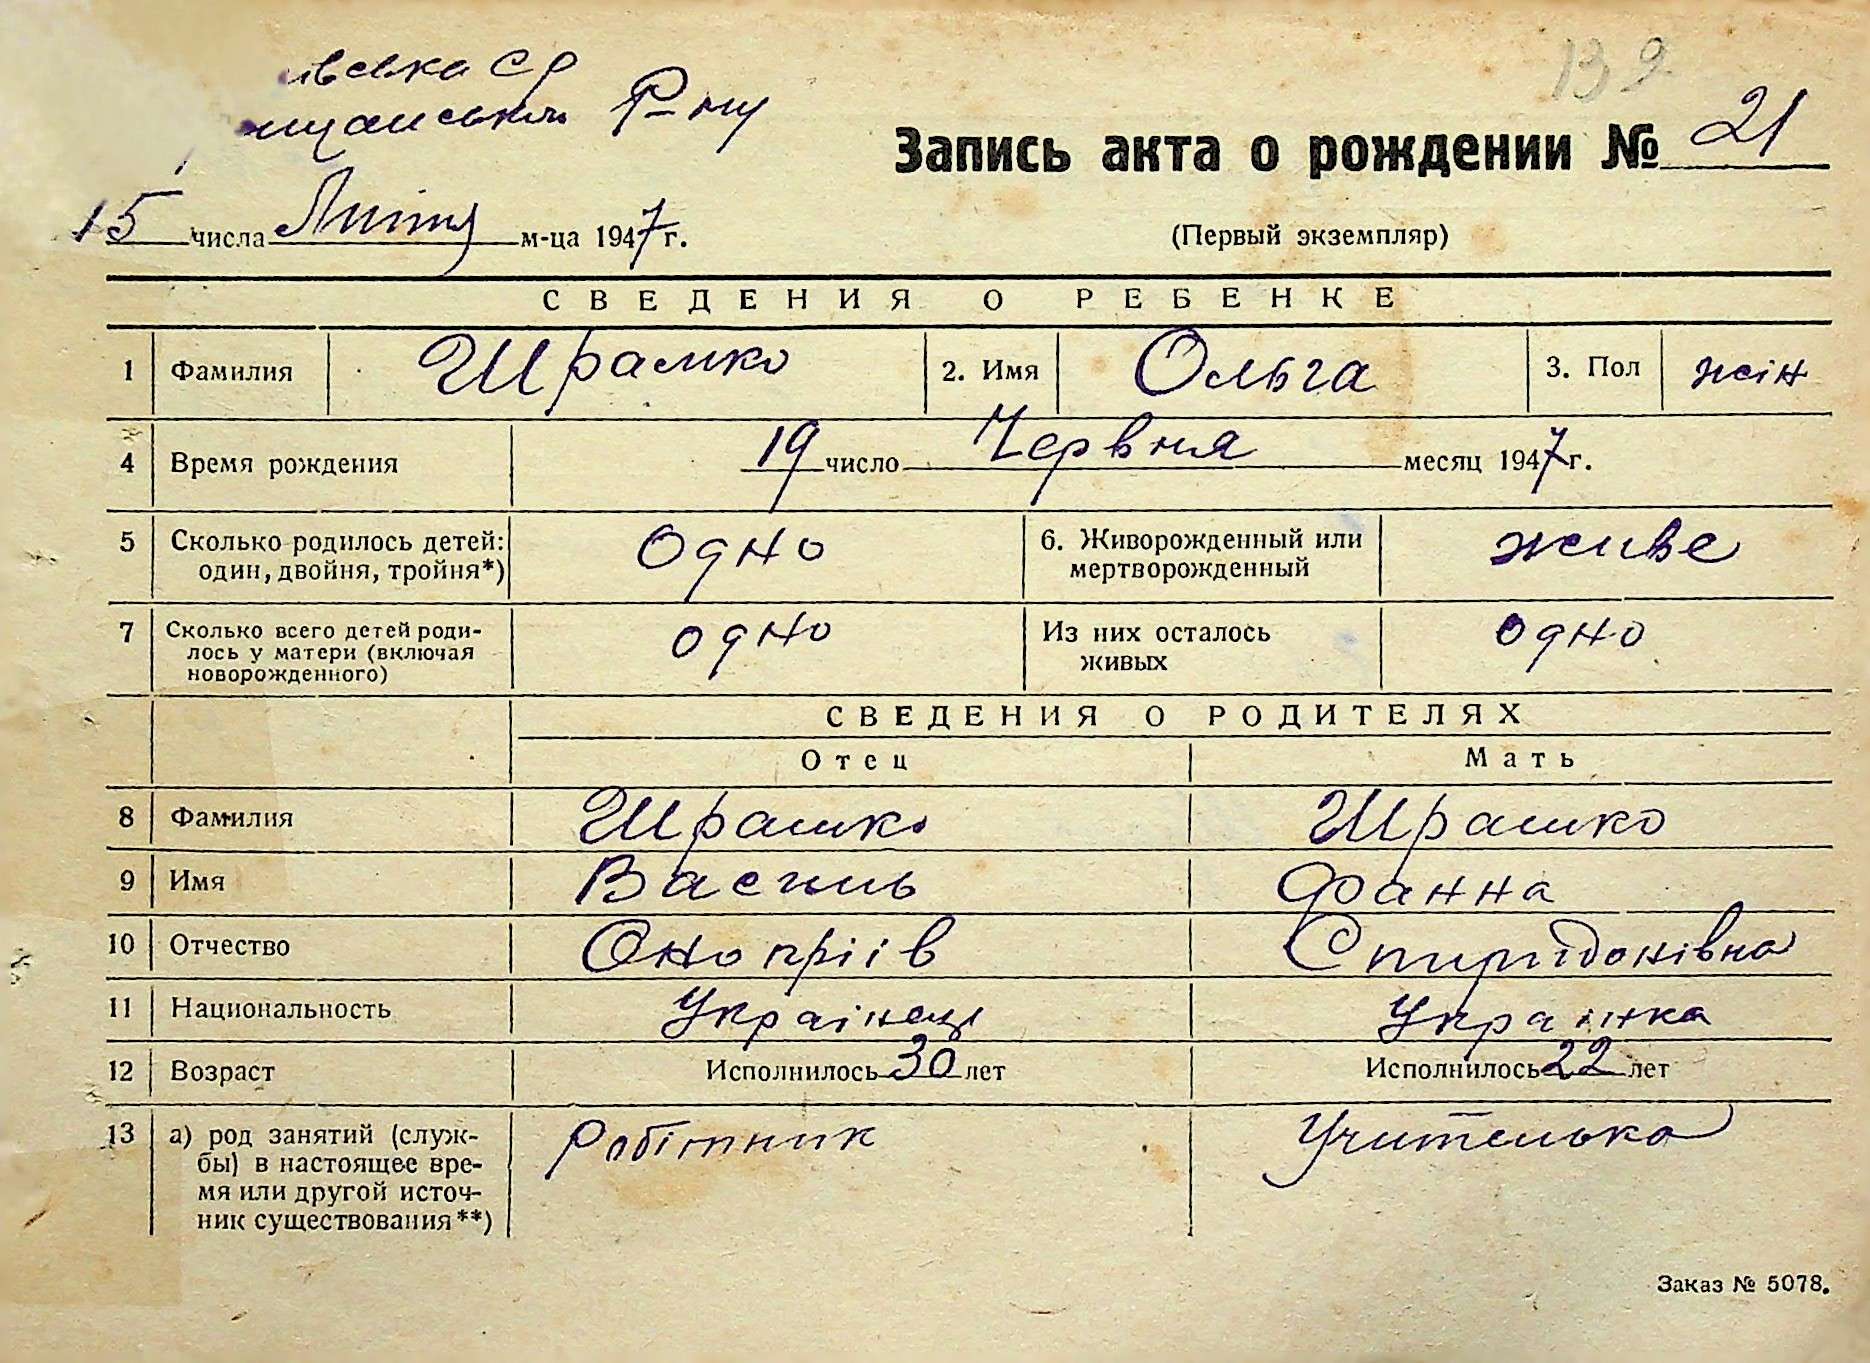 івська СР
нщанськ. Р-ну
139
Запись акта о рождении № 21
15 числа Липня м-ца 1947 г.
(Первый экземпляр)
СВЕДЕНИЯ О РЕБЕНКЕ
1 Фамилия Шрамко 2. Имя Ольга 3. Пол жін
4 Время рождения 19 число Червня месяц 1947 г.
5 Сколько родилось детей: один, двойня, тройня*) Одно 6. Живорожденный или мертворожденный живе
7 Сколько всего детей родилось у матери (включая новорожденного) одно Из них осталось живых одно
СВЕДЕНИЯ О РОДИТЕЛЯХ
Отец Мать
8 Фамилия Шрамко Шрамко
9 Имя Василь Фанна
10 Отчество Онопріів Спиридонівна
11 Национальность Українец Українка
12 Возраст Исполнилось 30 лет Исполнилось 22 лет
13 а) род занятий (службы) в настоящее время или другой источник существования**) Робітник Учителька
Заказ № 5078.